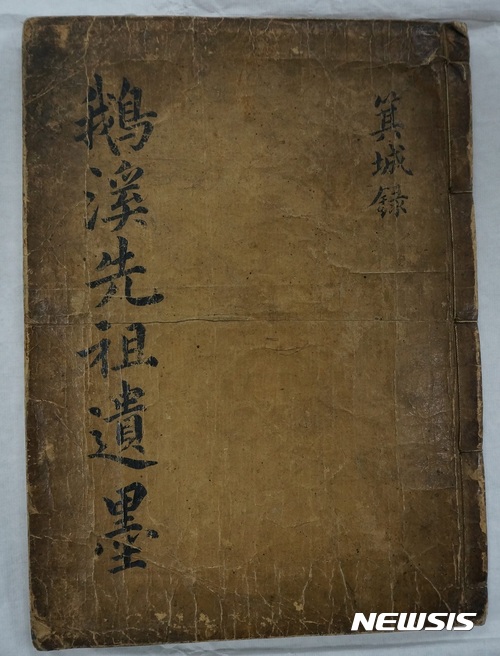 箕城録
鵝溪先祖遺墨
NEWSIS